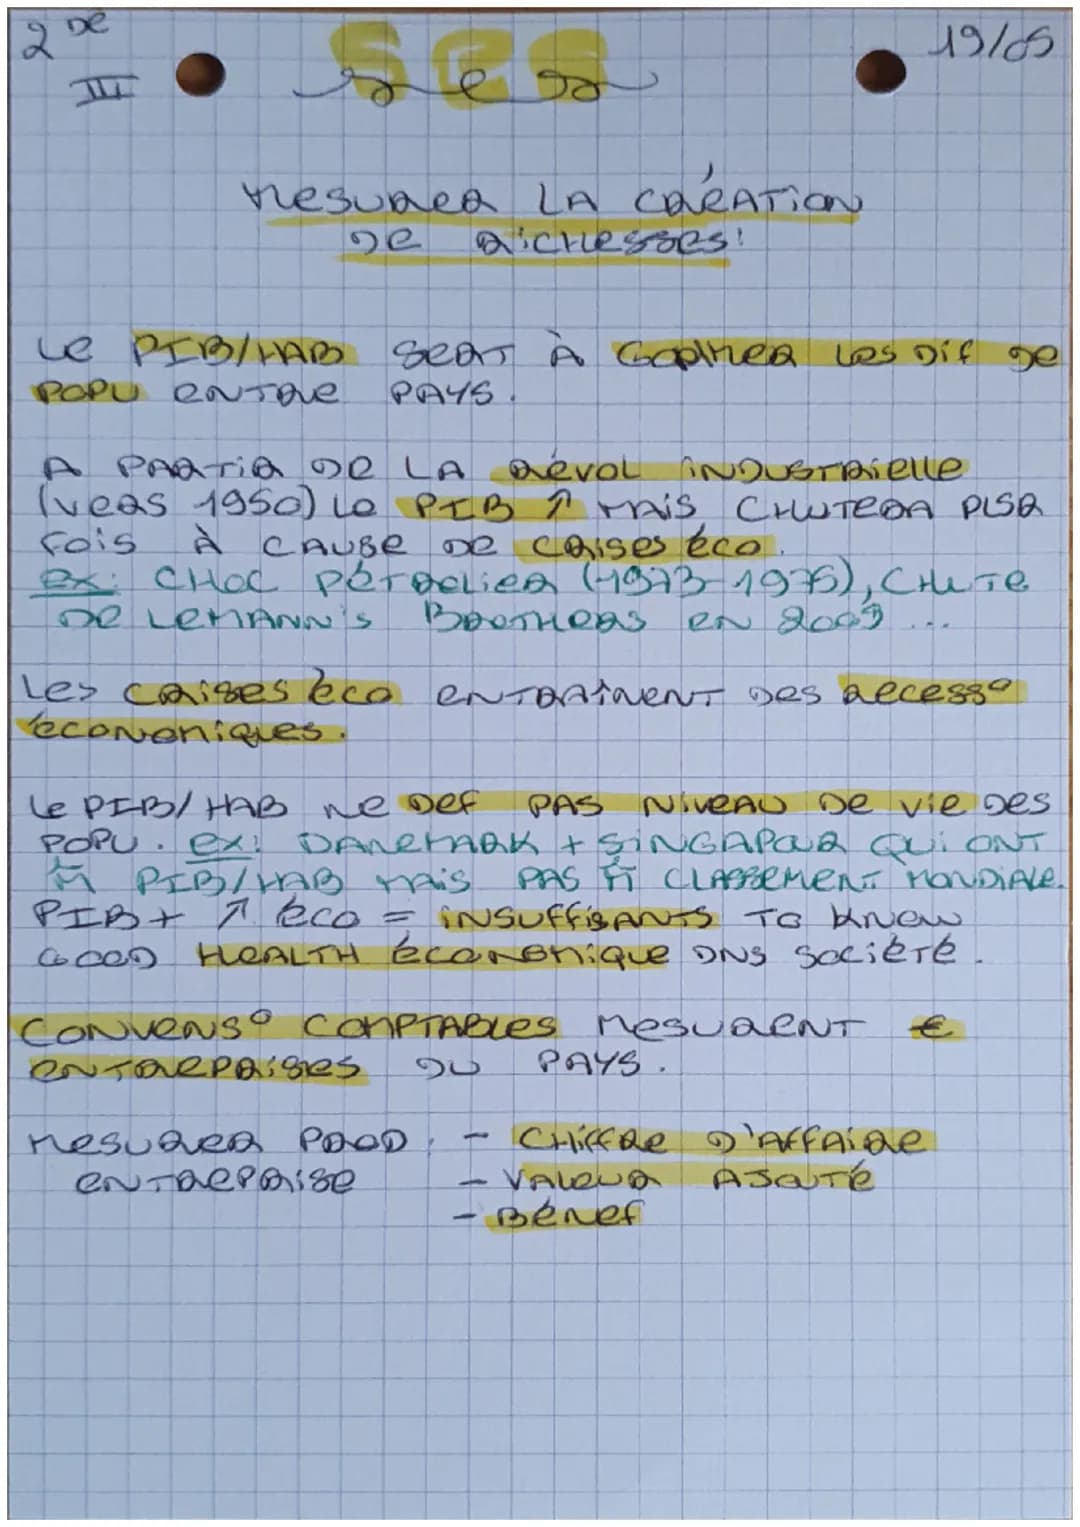 2 DE
III
SES
ses
19/05
MESURER LA CRÉATION
DE RICHESSES:
Le PIB/HAB SERT À GOMMER LES DIF DE
POPU ENTRE PAYS.
A PARTIR DE LA RÉVOL INDUSTRIELLE
(VERS 1950) Le PIB ↑ MAIS CHUTERA PLSR
FOIS À CAUSE DE CRISES ÉCO.
EX: CHOC PÉTROLIER (1973-1975), CHUTE
DE LEMANN'S BROTHERS EN 2009 ...
Les CRISES ÉCO ENTRAÎNENT DES RECESS°
ÉCONOMIQUES.
Le PIB/HAB NE DEF PAS NIVEAU DE VIE DES
POPU. EX: DANEMARK + SINGAPOUR QUI ONT
m̂ PIB/HAB MAIS PAS m̂ CLASSEMENT MONDIALE.
PIB + ↑ ÉCO = INSUFFISANTS TO KNOW
GOOD HEALTH ÉCONOMIQUE DNS SOCIÉTÉ.
CONVENS° COMPTABLES MESURENT €
ENTREPRISES DU PAYS.
MESURER PROD : - CHIFFRE D'AFFAIRE
ENTREPRISE - VALEUR AJOUTÉ
- BÉNEF